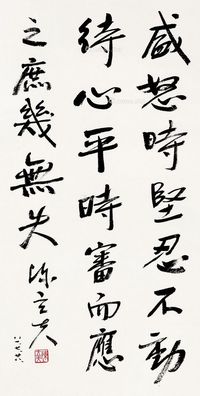 盛怒時堅忍不動
待心平時審而應
之庶幾無失 陳立夫